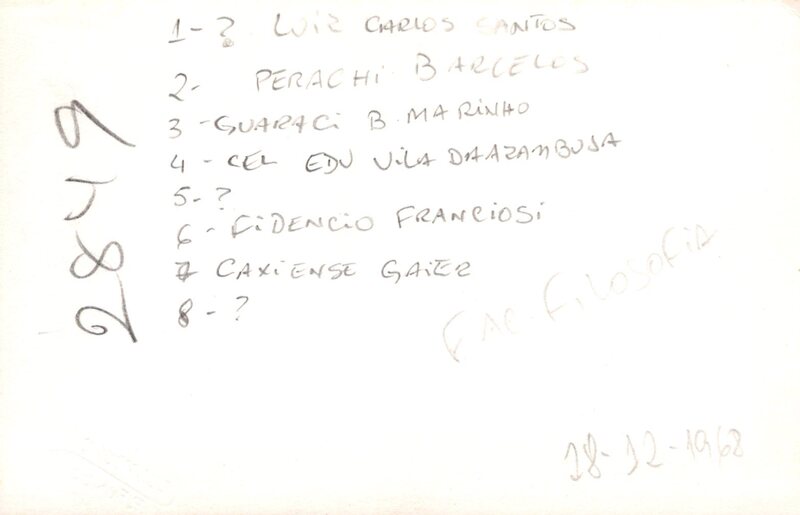 1-? LUIZ CARLOS SANTOS
2- PERACHI BARCELOS
3-GUARACI B. MARINHO
4-CEL EDU VILA DAAZAMBUJA
5-?
6-FIDENCIO FRANCIOSI
7 CAXIENSE GAIER
8-?
FAC. FILOSOFIA
18-12-1968
2849